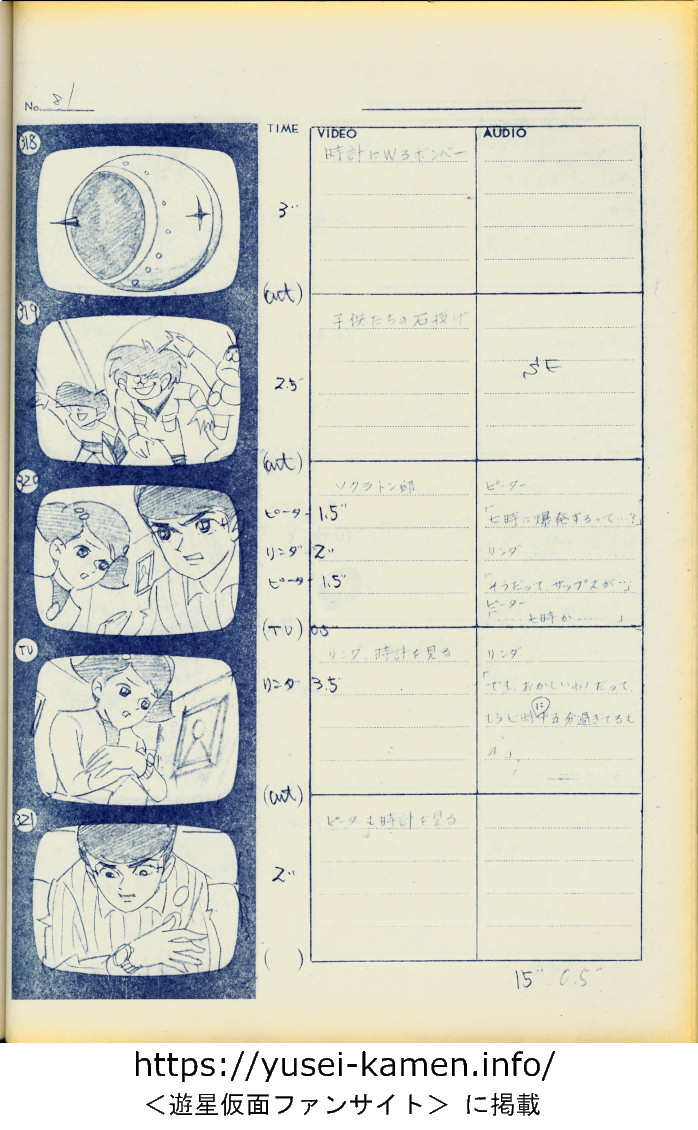 No. 81
TIME VIDEO AUDIO
318
時計にWるボンベー
3"
(cut)
319
子供たちの石投げ
2.5"
(cut)
320
ソクラトン邸
ピーター
ピーター 1.5"
「七時に爆発するって…?」
リンダ 2"
リンダ
ピーター 1.5"
「そうだって、サップスが…」
ピーター
「……七時か……」
(TU) 0.5"
TU
リンダ、時計を見る
リンダ
リンダ 3.5"
「でも、おかしいわ!だって
もう七時に十五分過ぎてるも
ル」
(cut)
321
ピーターも時計を見る
2"
( )
15" 0.5"
https://yusei-kamen.info/
＜遊星仮面ファンサイト＞ に掲載